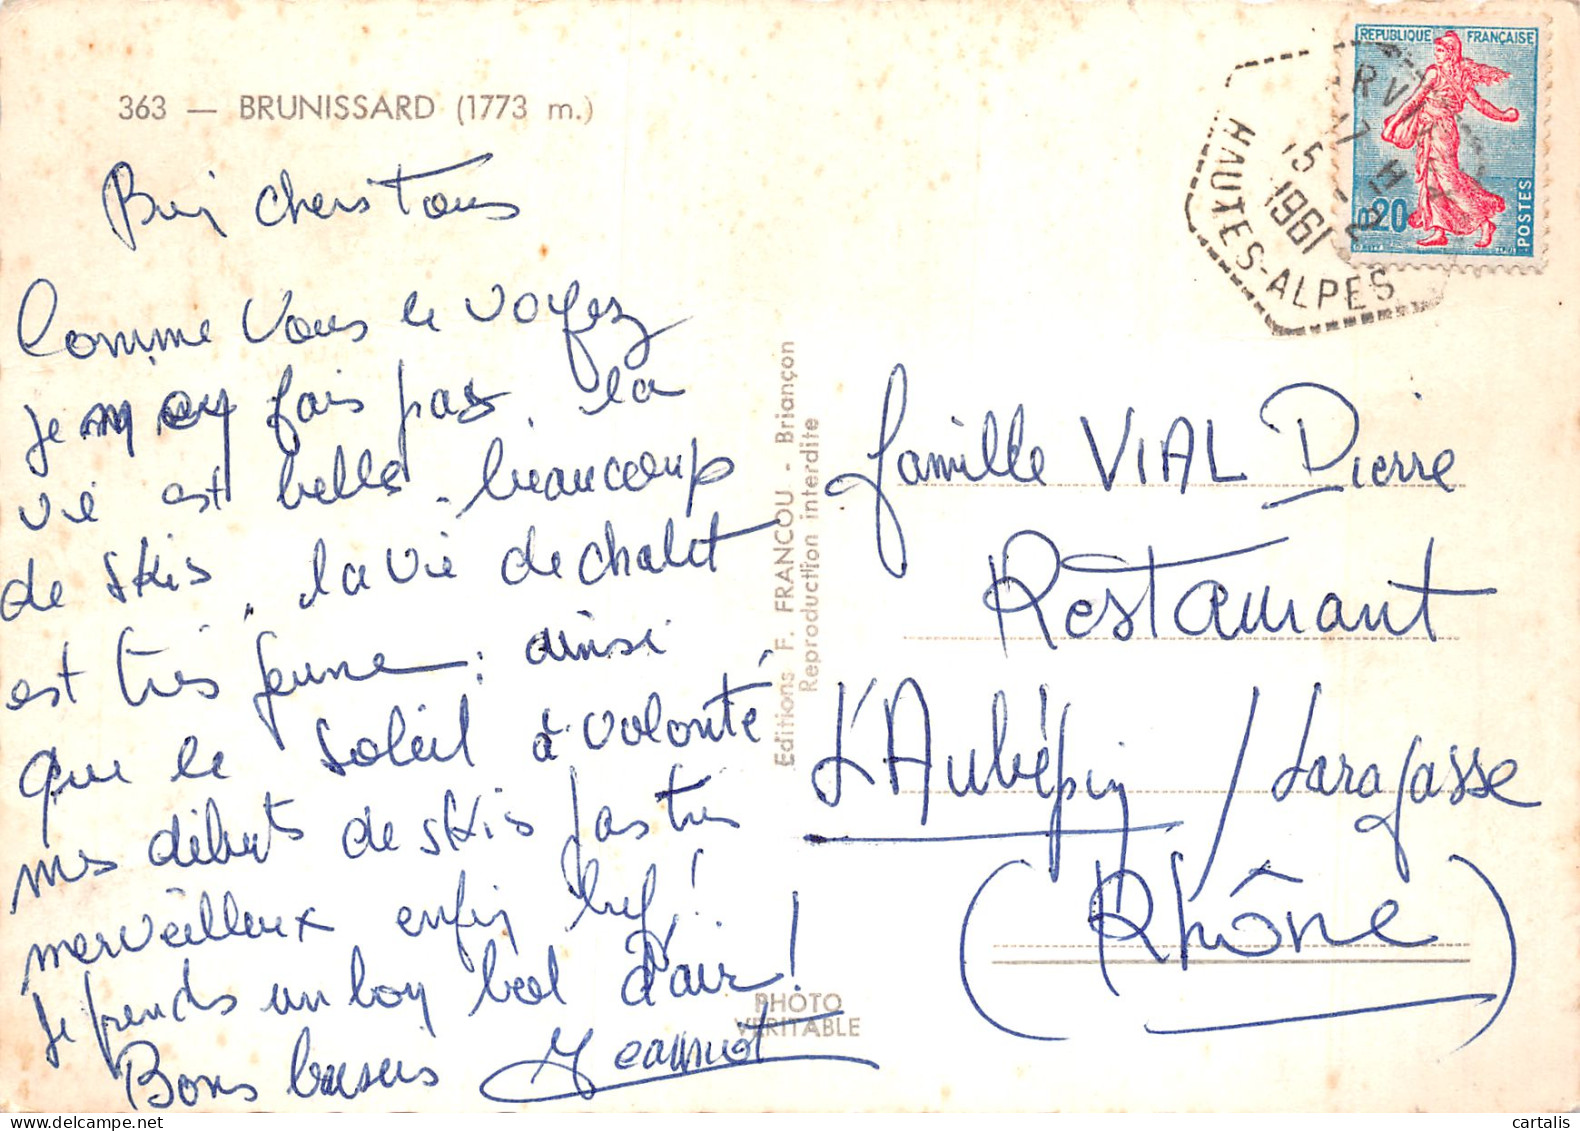 363 — BRUNISSARD (1773 m.)
REPUBLIQUE FRANÇAISE
0,20
POSTES
ARVI
17 H
15 - 2
1961
HAUTES-ALPES
Bien chers Tous
Comme vous le voyez
je m'en fais pas, la
vie est belle, beaucoup
de skis, la vie de chalet
est très jeune, ainsi
que le soleil à volonté
mes débuts de skis pas très
merveilleux enfin bref!
je prends un bon bol d'air!
Bons baisers Jeannot
Editions F. FRANCOU - Briançon
Reproduction interdite
PHOTO
VÉRITABLE
famille VIAL Pierre
Restaurant
L'Aubépin / Larajasse
(Rhône)
cartalis